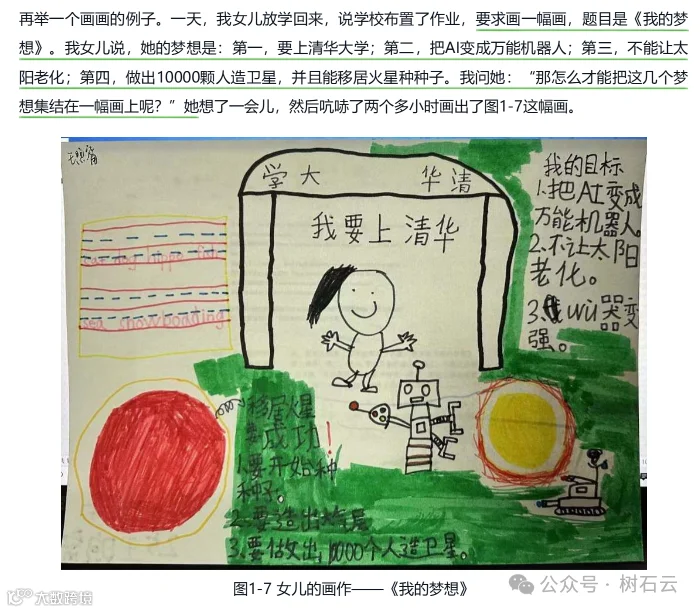 再举一个画画的例子。一天，我女儿放学回来，说学校布置了作业，要求画一幅画，题目是《我的梦
想》。我女儿说，她的梦想是：第一，要上清华大学；第二，把AI变成万能机器人；第三，不能让太
阳老化；第四，做出10000颗人造卫星，并且能移居火星种种子。我问她：“那怎么才能把这几个梦
想集结在一幅画上呢？”她想了一会儿，然后吭哧了两个多小时画出了图1-7这幅画。
学大 华清
我要上清华
我的目标
1.把AI变成
万能机器人。
2.不让太阳
老化。
3. wǔ器变
强。
snowboarding
移居火星
要成功！
1.要开始种
种子。
2.要造出
3.要做出10000个人造卫星。
图1-7 女儿的画作——《我的梦想》
公众号·树石云
大数跨境